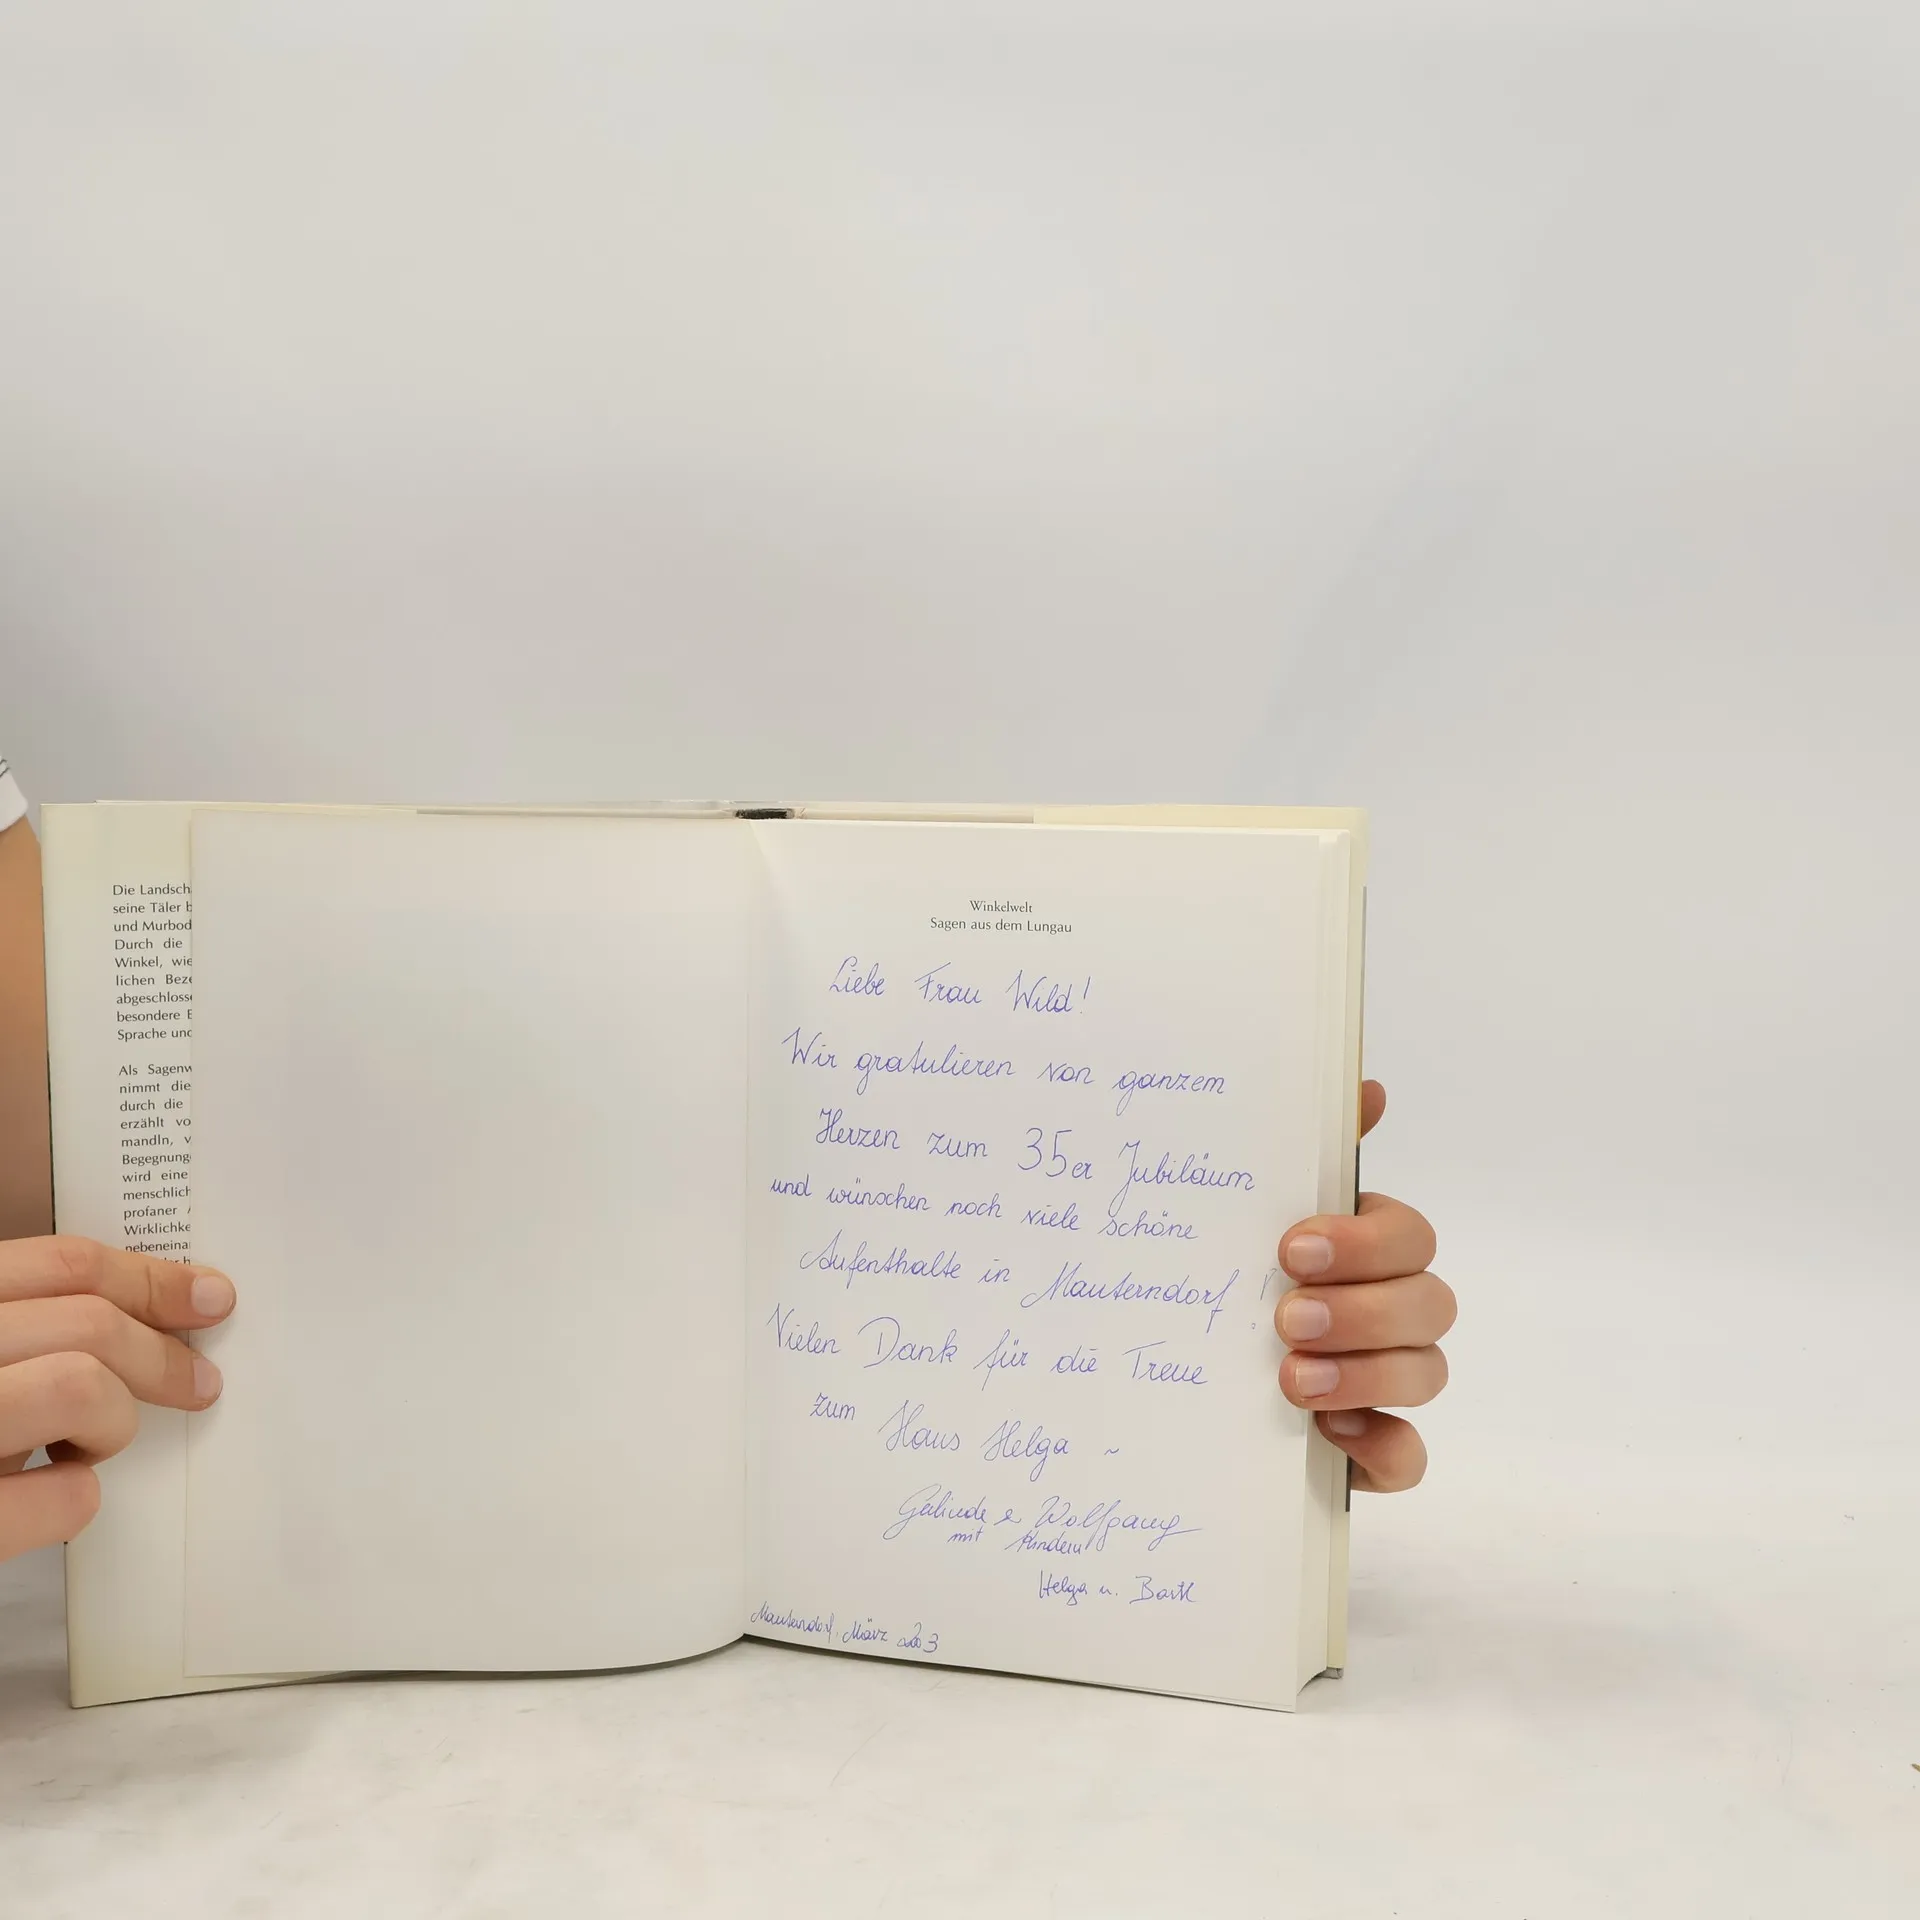 Die Landsch
seine Täler b
und Murbod
Durch die
Winkel, wie
lichen Beze
abgeschlosse
besondere E
Sprache und
Als Sagenw
nimmt die
durch die
erzählt vo
mandln, v
Begegnung
wird eine
menschlich
profaner
Wirklichke
nebeneina
Winkelwelt
Sagen aus dem Lungau
Liebe Frau Wild!
Wir gratulieren von ganzem
Herzen zum 35er Jubiläum
und wünschen noch viele schöne
Aufenthalte in Mauterndorf!
Vielen Dank für die Treue
zum Haus Helga ~
Gerlinde & Wolfgang
mit Kindern
Helga u. Bartl
Mauterndorf, März 2003